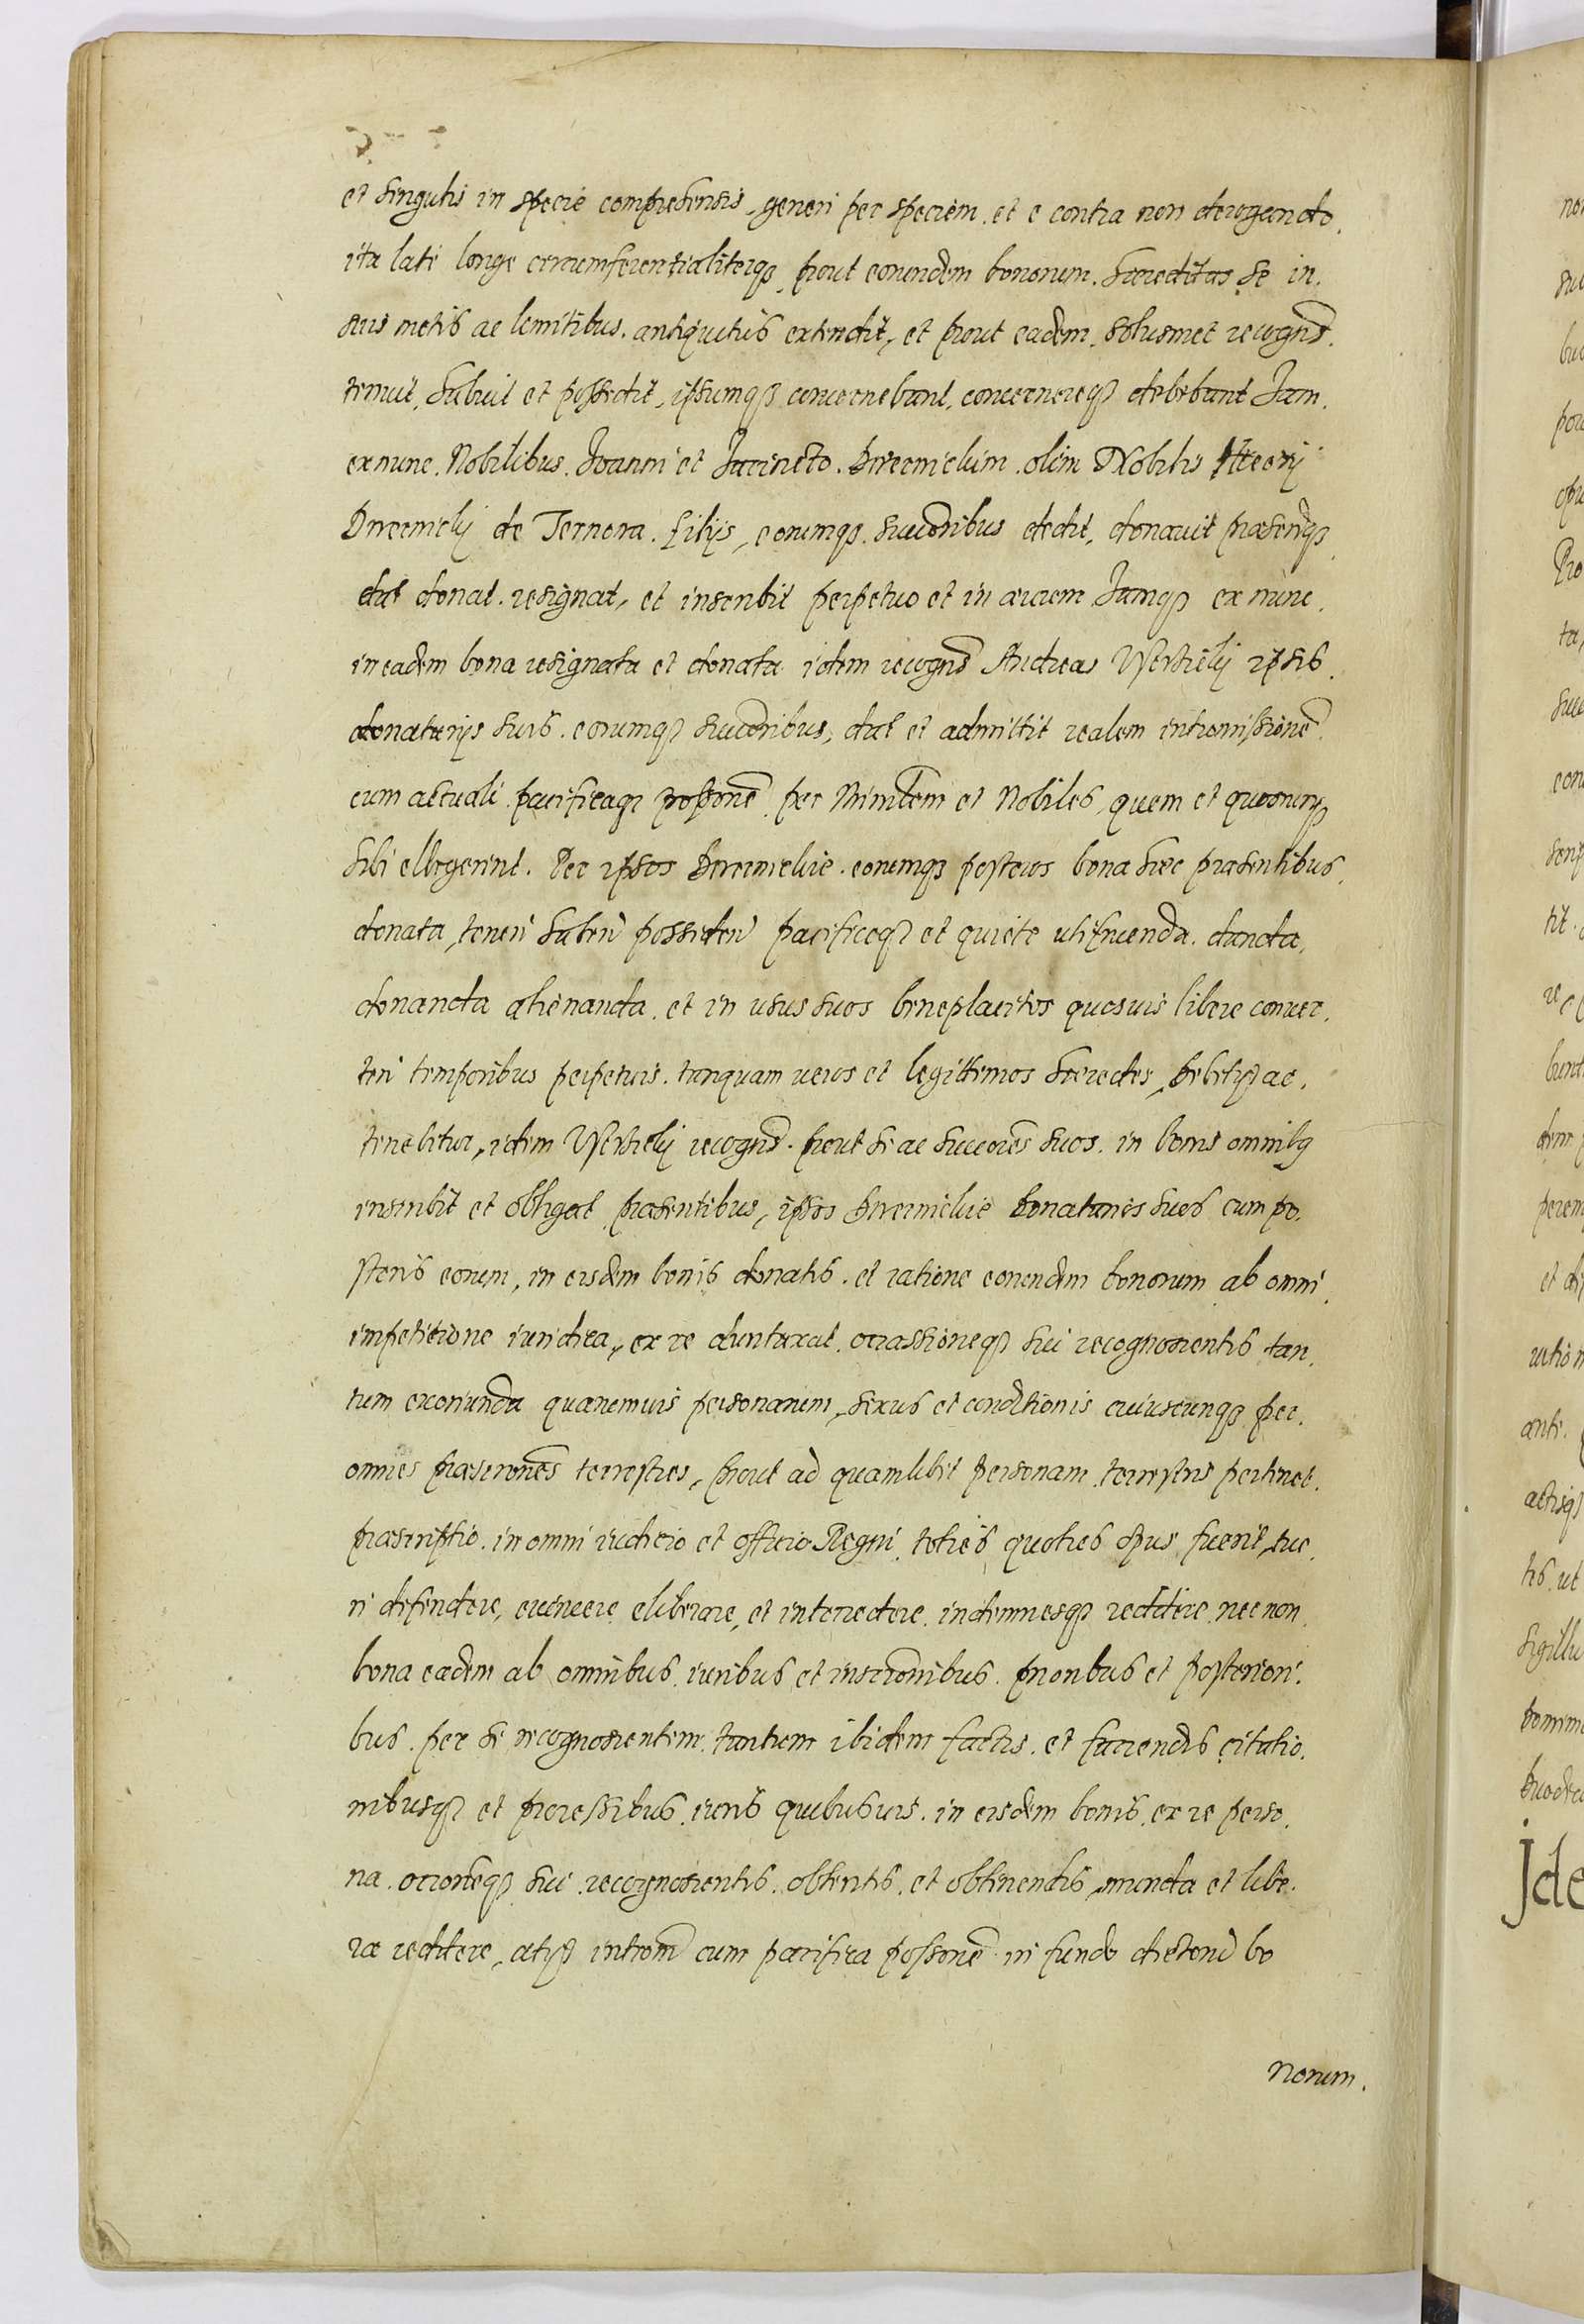 et singulis in specie comprehensis, generi per speciem et e contra non derogando.
ita late longe circumferentialiterq₃, prout eorundem bonorum. haereditas se in.
suis metis ac limitibus. antiquitus extendit, et prout eadem. solusmet recogns̃.
tenuit, habuit et possedit, ipsumq₃ concernebant, concernereq₃ debebant Jam.
ex nunc. Nobilibus. Joanni et Jacincto. olim Nobilis
de Ternora. filijs, eorumq₃. succoribus dedit, donavit praesentiq₃
dat donat. resignat, et inscribit perpetuo et in aevum Jamq₃ ex nunc.
in eadem bona resignata et donata idem recogns̃ Andreas ipsis.
donatarijs suis. eorumq₃ succoribus, dat et admittit realem intromissionẽ.
cum actuali pacificaq₃ possonẽ. per Minrlem et Nobiles, quem et quosnunq₃
sibi ellegerint. Per ipsos eorumq₃ posteros bona haec praesentibus.
donata, teneri haberi possideri pacificeq₃ et quiete utifruenda. danda.
donanda alienanda. et in usus suos beneplacitos quosuis libere conuer.
teri temporibus perpetuis. tanquam ueros et legittimos haeredes, debebitq₃ ac.
tenebitur, idem recogns̃. prout se ac succores suos. in bonis omnibq
inscribit et obligat praesentibus, ipsos donatarios suos cum po.
steris eorum, in eisdem bonis donatis. et ratione eorundem bonorum ab omni.
impetitione iuridica, ex re duntaxat. occassioneq₃ sui recognoscentis tan.
tum exoriunda quarumuis personarum, sexus et conditionis cuiuscunq₃ per.
omnes praescrones terrestres, prout ad quamlibet personam. terrestris pertinet.
praescriptio. in omni iudicio et officio Regni. toties quoties opus fuerit, tue.
ri defendere, euincere eliberare, et intercedere. indemnesq₃ reddere nec non.
bona eadem ab omnibus. iuribus et inscronibus. prioribus et posteriori.
bus. per se recognoscentem. tantum ibidem factis. et faciendis citatio.
nibusq₃ et processibus. iuris quibusuis. in eisdem bonis. ex re perso.
na. occoneq₃ sui recognoscentis. obtentis. et obtinendis, munda et libe.
ra reddere, atq₃ introm̃ cum pacifica possonẽ in fundo dictorũ bo
norum.